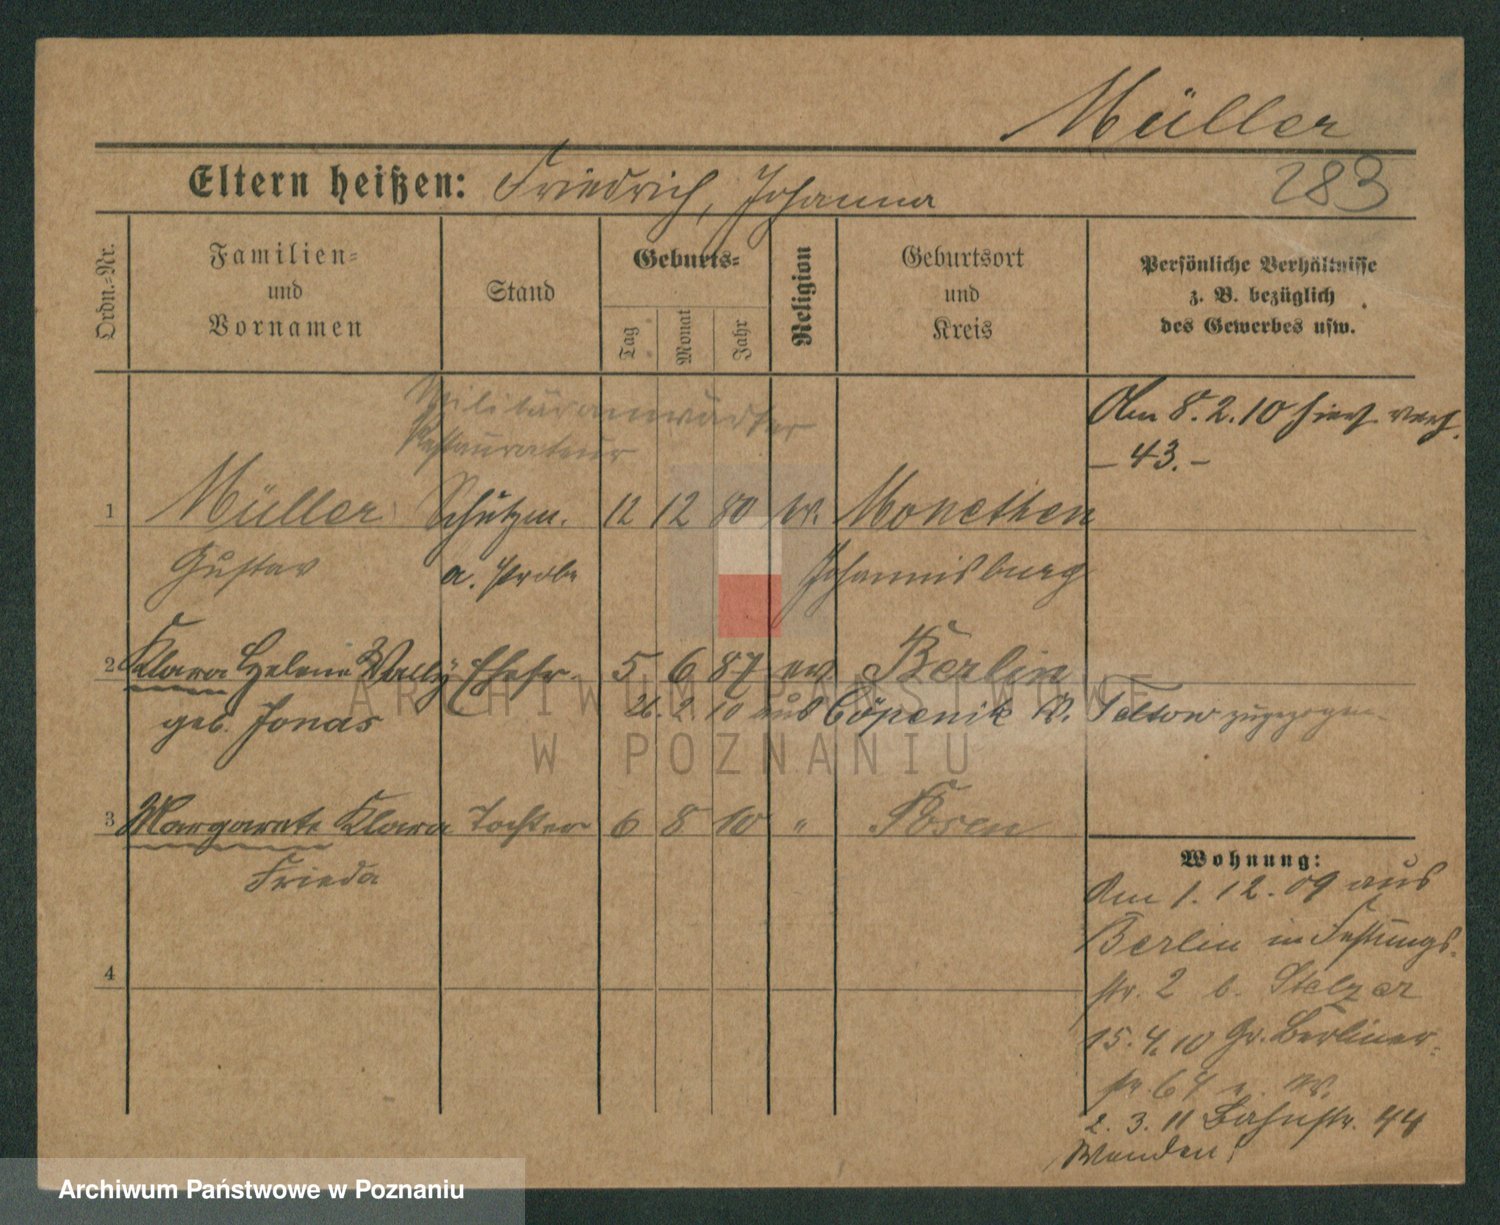 Müller
283
Eltern heißen: Friedrich, Johanna
Ordn.-Nr.
Familien-
und
Vornamen
Stand
Geburts-
Tag
Monat
Jahr
Religion
Geburtsort
und
Kreis
Persönliche Verhältnisse
z. B. bezüglich
des Gewerbes usw.
Militäranwärter
Restaurateur
Am 8.2.10 hier verh.
- 43. -
1 Müller Schutzm. 12 12 80 ev. Monethen
Gustav a. Probe Johannisburg
2 Klara Helene Wally Ehefr. 5 6 87 ev Berlin
geb. Jonas 26. 2. 10 aus Cöpenik K. Teltow zugezogen.
3 Margarete Klara Tochter 6 8 10 " Posen
Frieda
4
Wohnung:
Am 1. 12. 09 aus
Berlin in Festungs-
str. 2 b. Stelzer
15. 4. 10 Gr. Berliner-
str. 64
2. 3. 11 Bahnstr. 44
Wenden!
ARCHIWUM PAŃSTWOWE
W POZNANIU
Archiwum Państwowe w Poznaniu